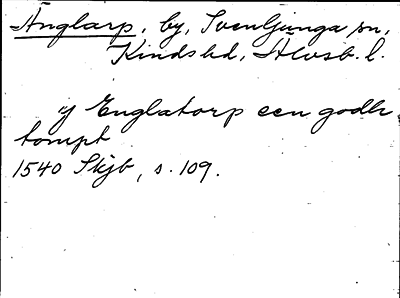 Änglarp, by, Svenljunga sn,
Kinds hd, Älvsb. l.
y Englatorp een godh
tompt
1540 Skjb, s. 109.